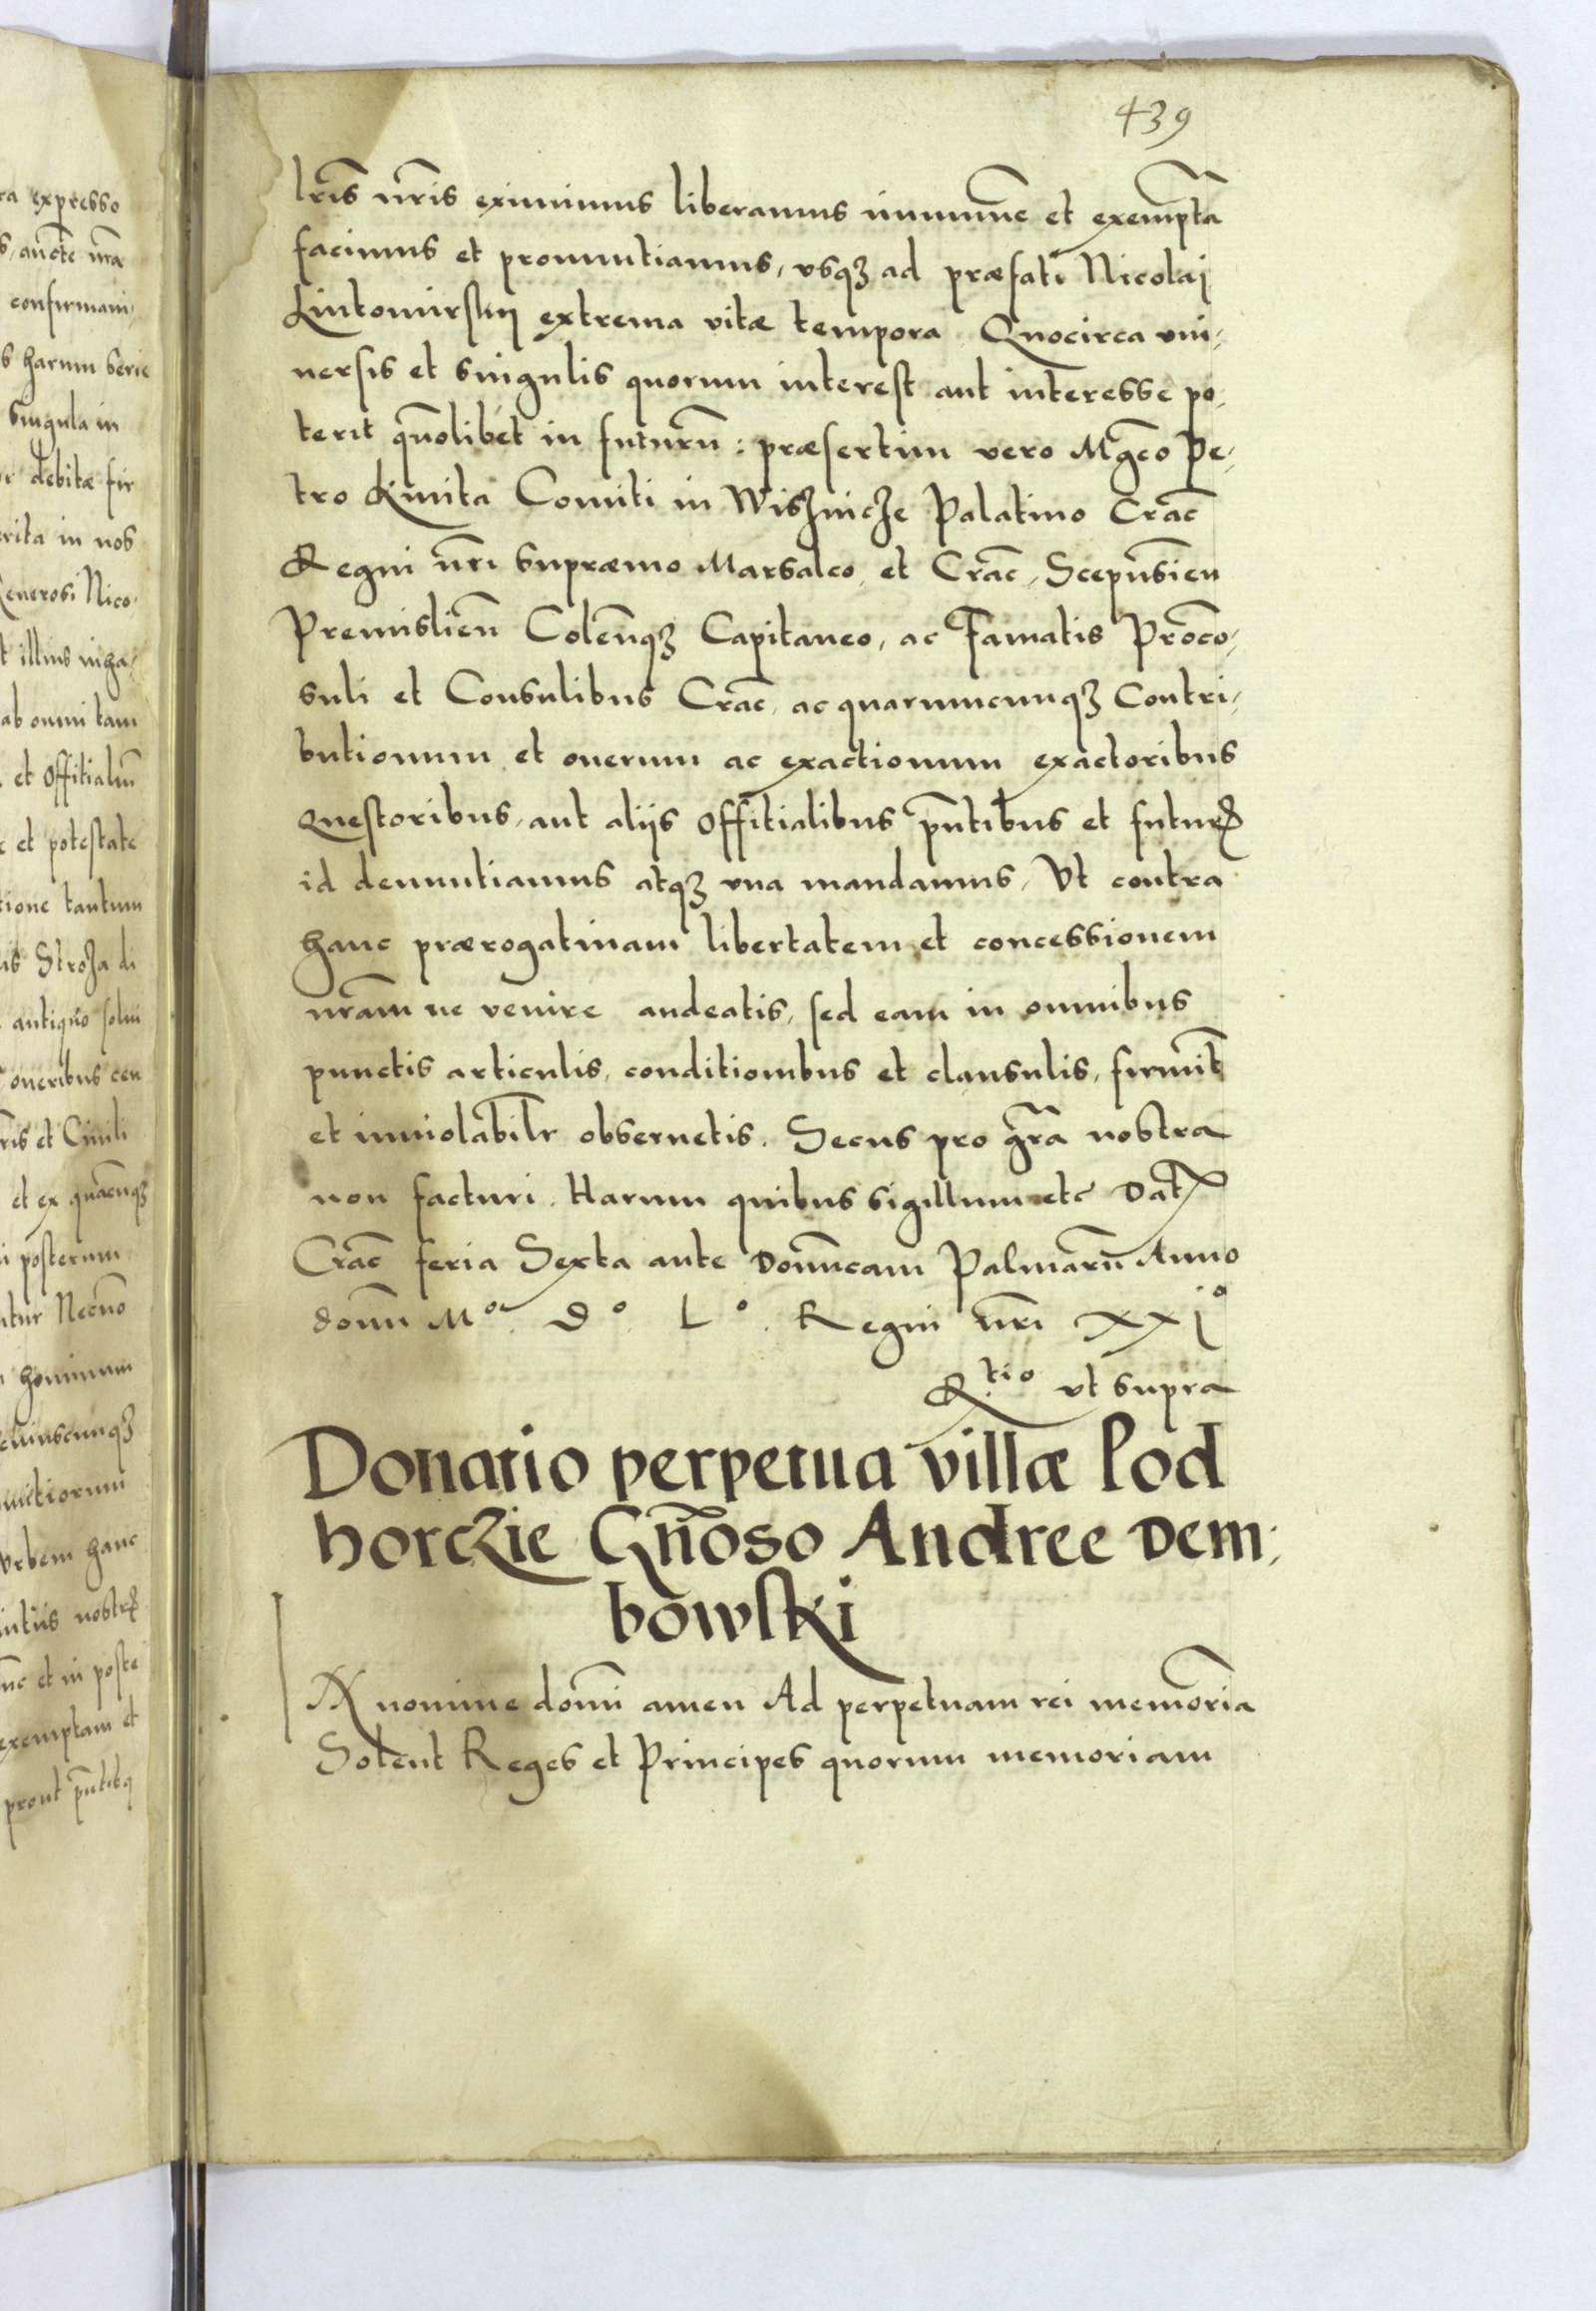 ra expresso
s, aucte nra
confirmani,
s harum serie
singula in
r debitæ fir
erita in nos
Generosi Nico,
t illius inha,
ab omni tam
et Offitialiū
e et potestate
tione tantum
is Stroza di
antiquo solui
oneribus ceu
ris et Ciuili
et ex quacūqꝫ
i posterum
ntur Necnō
hominum
cuiuscunqꝫ
Vrbem hanc
intiis nostrꝭ
nc et in poste
exemptam et
prout
439
lrīs nr̄is eximimus liberamus immunē et exemptā
facimus et pronuntiamus, vsqꝫ ad præfati Nicolaj
Lutomirskij extrema vitæ tempora. Quocirca vni,
uersis et singulis quorum interest aut interesse po,
terit quōlibet in futurū: præsertim vero Mgc̄o Pe,
tro Kmita Comiti in Wisznicze Palatino Crac̄
Regni nr̄i supræmo Marsalco, et Crac̄, Scepusien̄
Premislien̄ Colen̄qꝫ Capitaneo, ac Famatis Prōco,
suli et Consulibus Crac̄, ac quarumcunqꝫ Contri,
butionum et onerum ac exactionum exactoribus
Questoribus, aut aliis Offitialibus pn̄tibus et futurꝭ
id denuntiamus atqꝫ vna mandamus, Vt contra
hanc prærogatiuam libertatem et concessionem
nr̄am ne venire audeatis, sed eam in omnibus
punctis articulis, conditionibus et clausulis, firmit̄
et inuiolabilr̄ obseruetis. Secus pro gr̄a nostra
non facturi. Harum quibus sigillum etc̄ Dat̄
Crac̄ feria Sexta ante Domīcam Palmarū Anno
domī Mº. Dº. Lº. Regni nr̄i XXjº
Rtio vt supra
Donatio perpetua villæ Pod
horczie Gn̄oso Andree Dem,
bowski
IN nomine domī amen Ad perpetuam rei memoriā
Solent Reges et Principes quorum memoriam